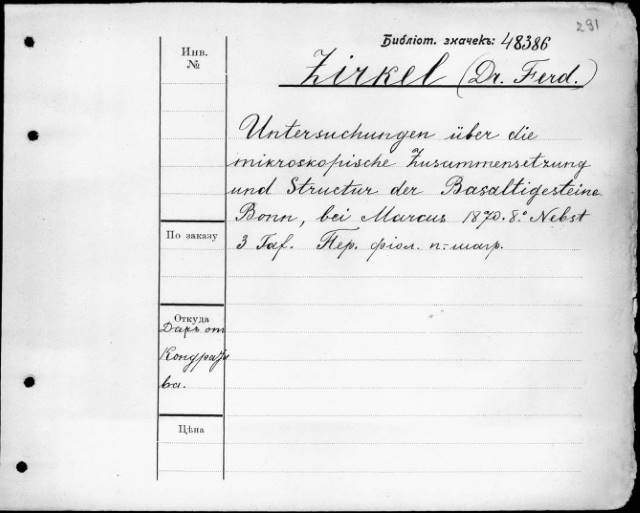 291
Библіот. значекъ: 48386
Инв.
№
Zirkel (Dr. Ferd.)
Untersuchungen über die
mikroskopische Zusammensetzung
und Structur der Basaltigesteine
Bonn, bei Marcus 1870. 8.° Nebst
3 Taf. Пер. фіол. п:-шагр.
По заказу
Откуда
Даръ от
Кондратье
ва.
Цѣна